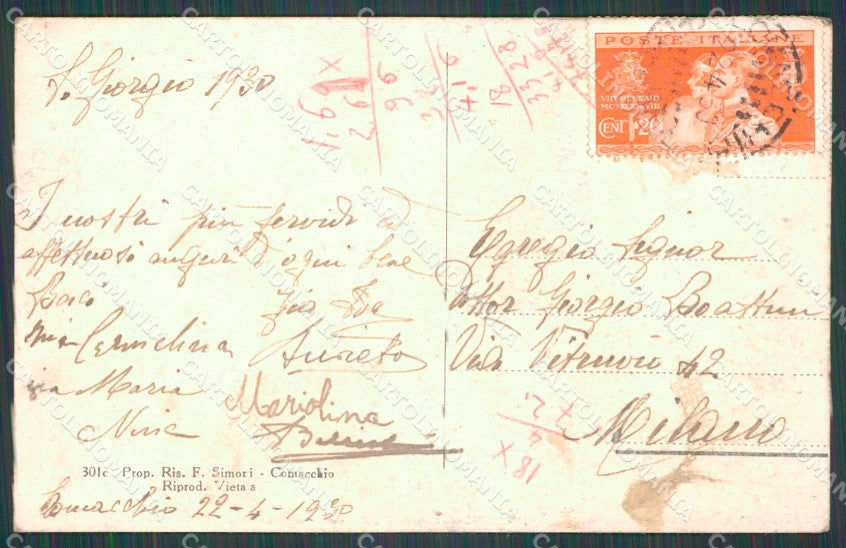 S. Giorgio 1930
I nostri più fervidi ed
affettuosi auguri d'ogni bene
Baci
zio Ida
zia Carmelina
Aurelio
zia Maria
Mariolina
Nina
301c Prop. Ris. F. Simori - Comacchio
Riprod. Vietata
Comacchio 22-4-1930
POSTE ITALIANE
VIII GENNAIO
MCMXXXVIII
CENT 1·20
Egregio Signor
Dottor Giorgio Boattini
Via Vitruvio 42
Milano